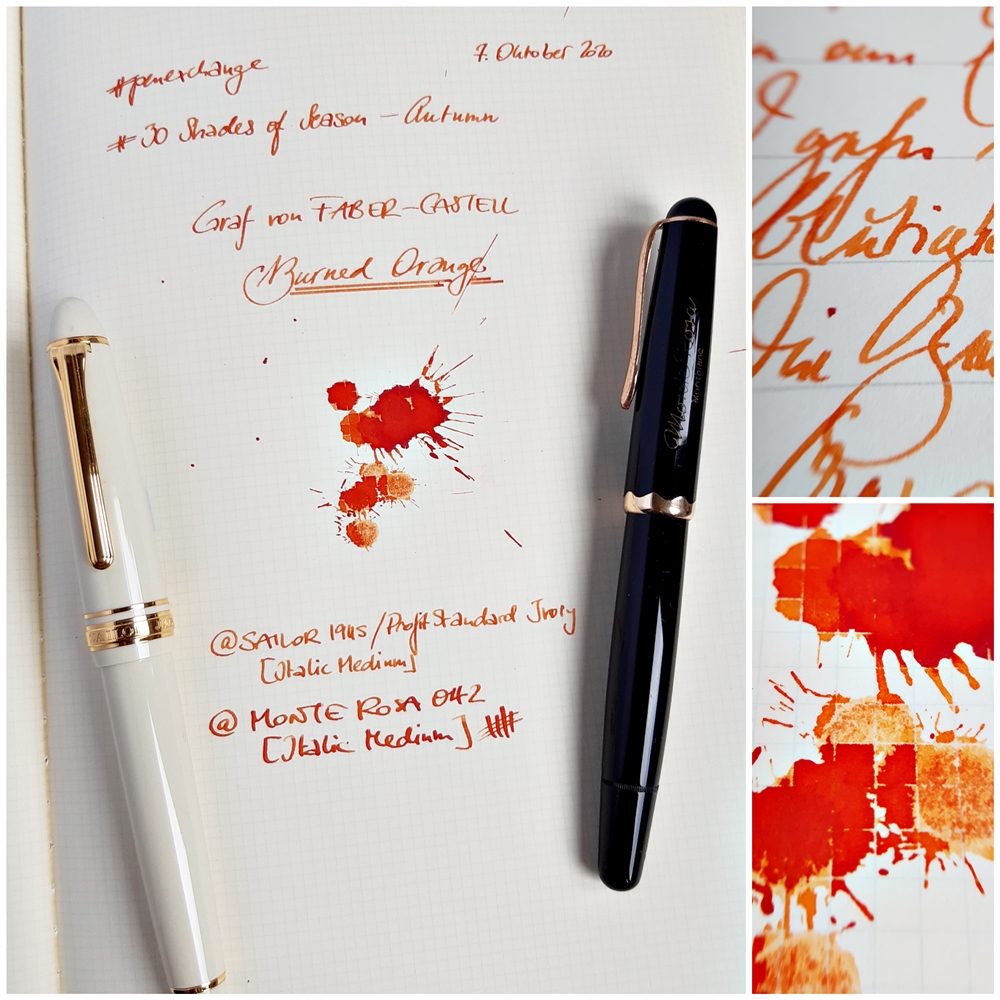 #penexchange
7. Oktober 2020
#30 Shades of Season – Autumn
Graf von FABER-CASTELL
Burned Orange
@SAILOR 1911S / Profit Standard Ivory
[Italic Medium]
@ MONTE ROSA 042
[Italic Medium]
Monte Rosa
Montblanc
SAILOR